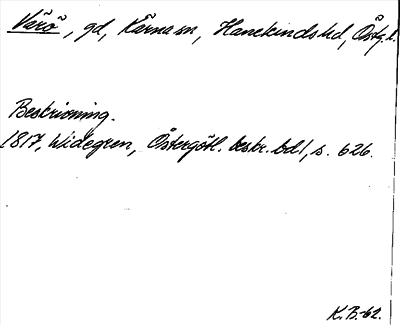 Värö, gd, Kärna sn, Hanekinds hd, Östg. l.
Beskrivning.
1817, Widegren, Östergötl. beskr. bd 1, s. 626.
K.B.-62.